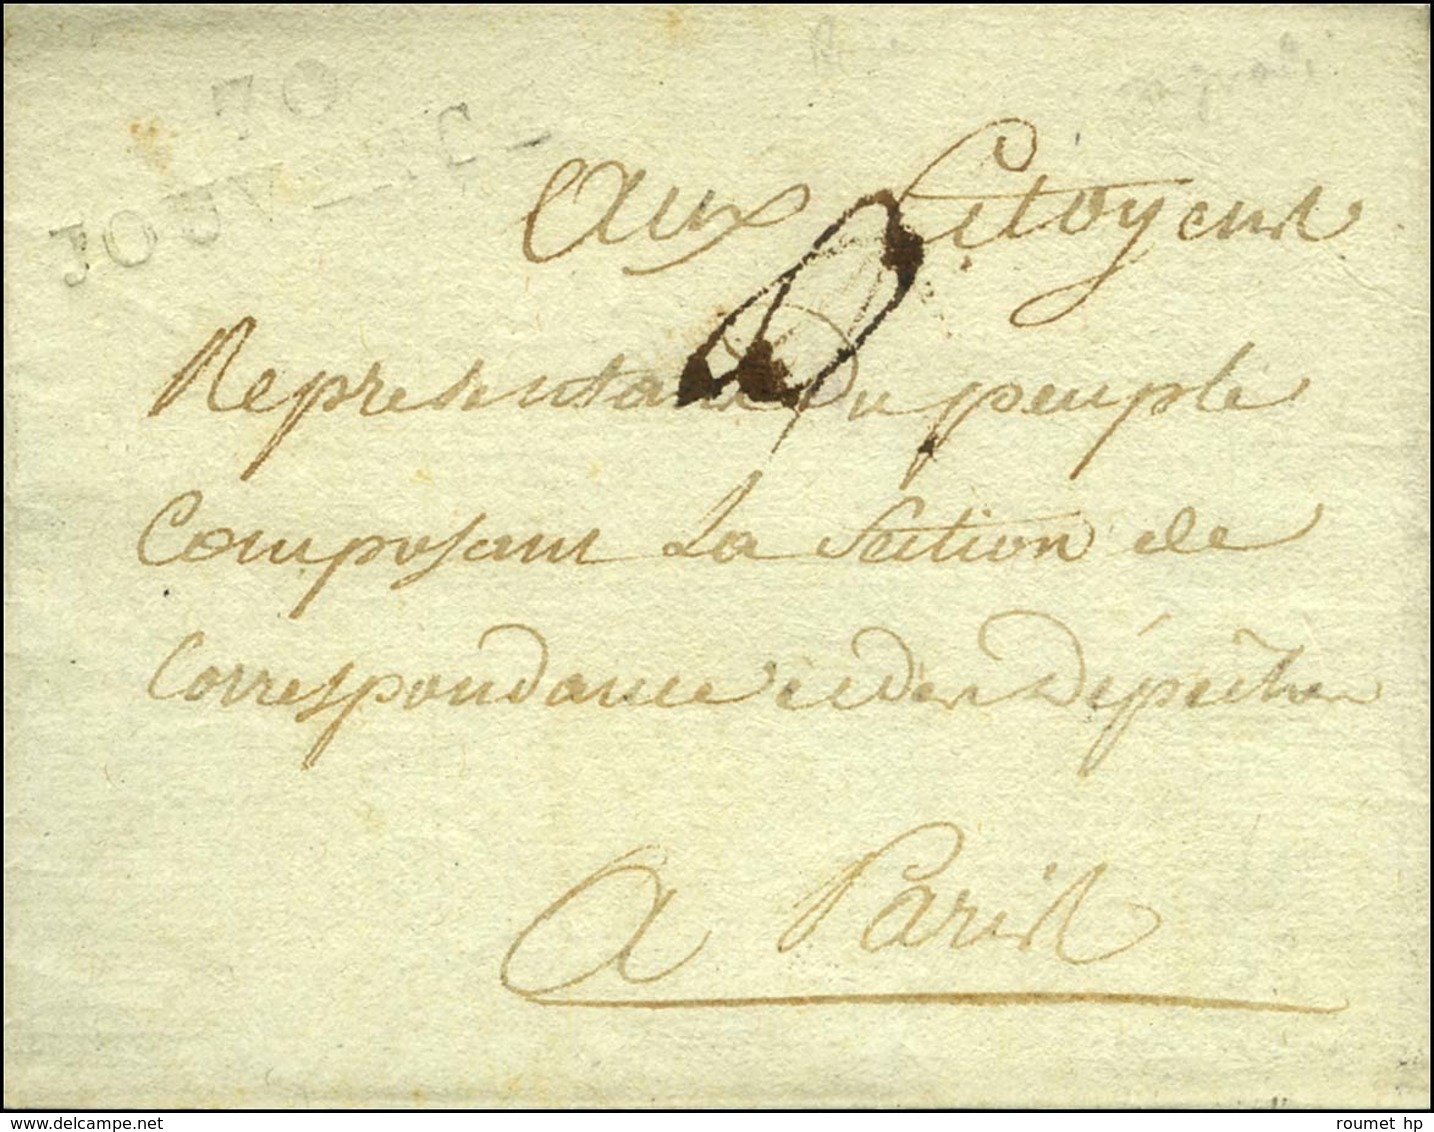 70
Aux Citoyens
Representans du peuple
Composant La Section de
Correspondance et des Dépêches
A Paris
© delcampe.net
roumet hp